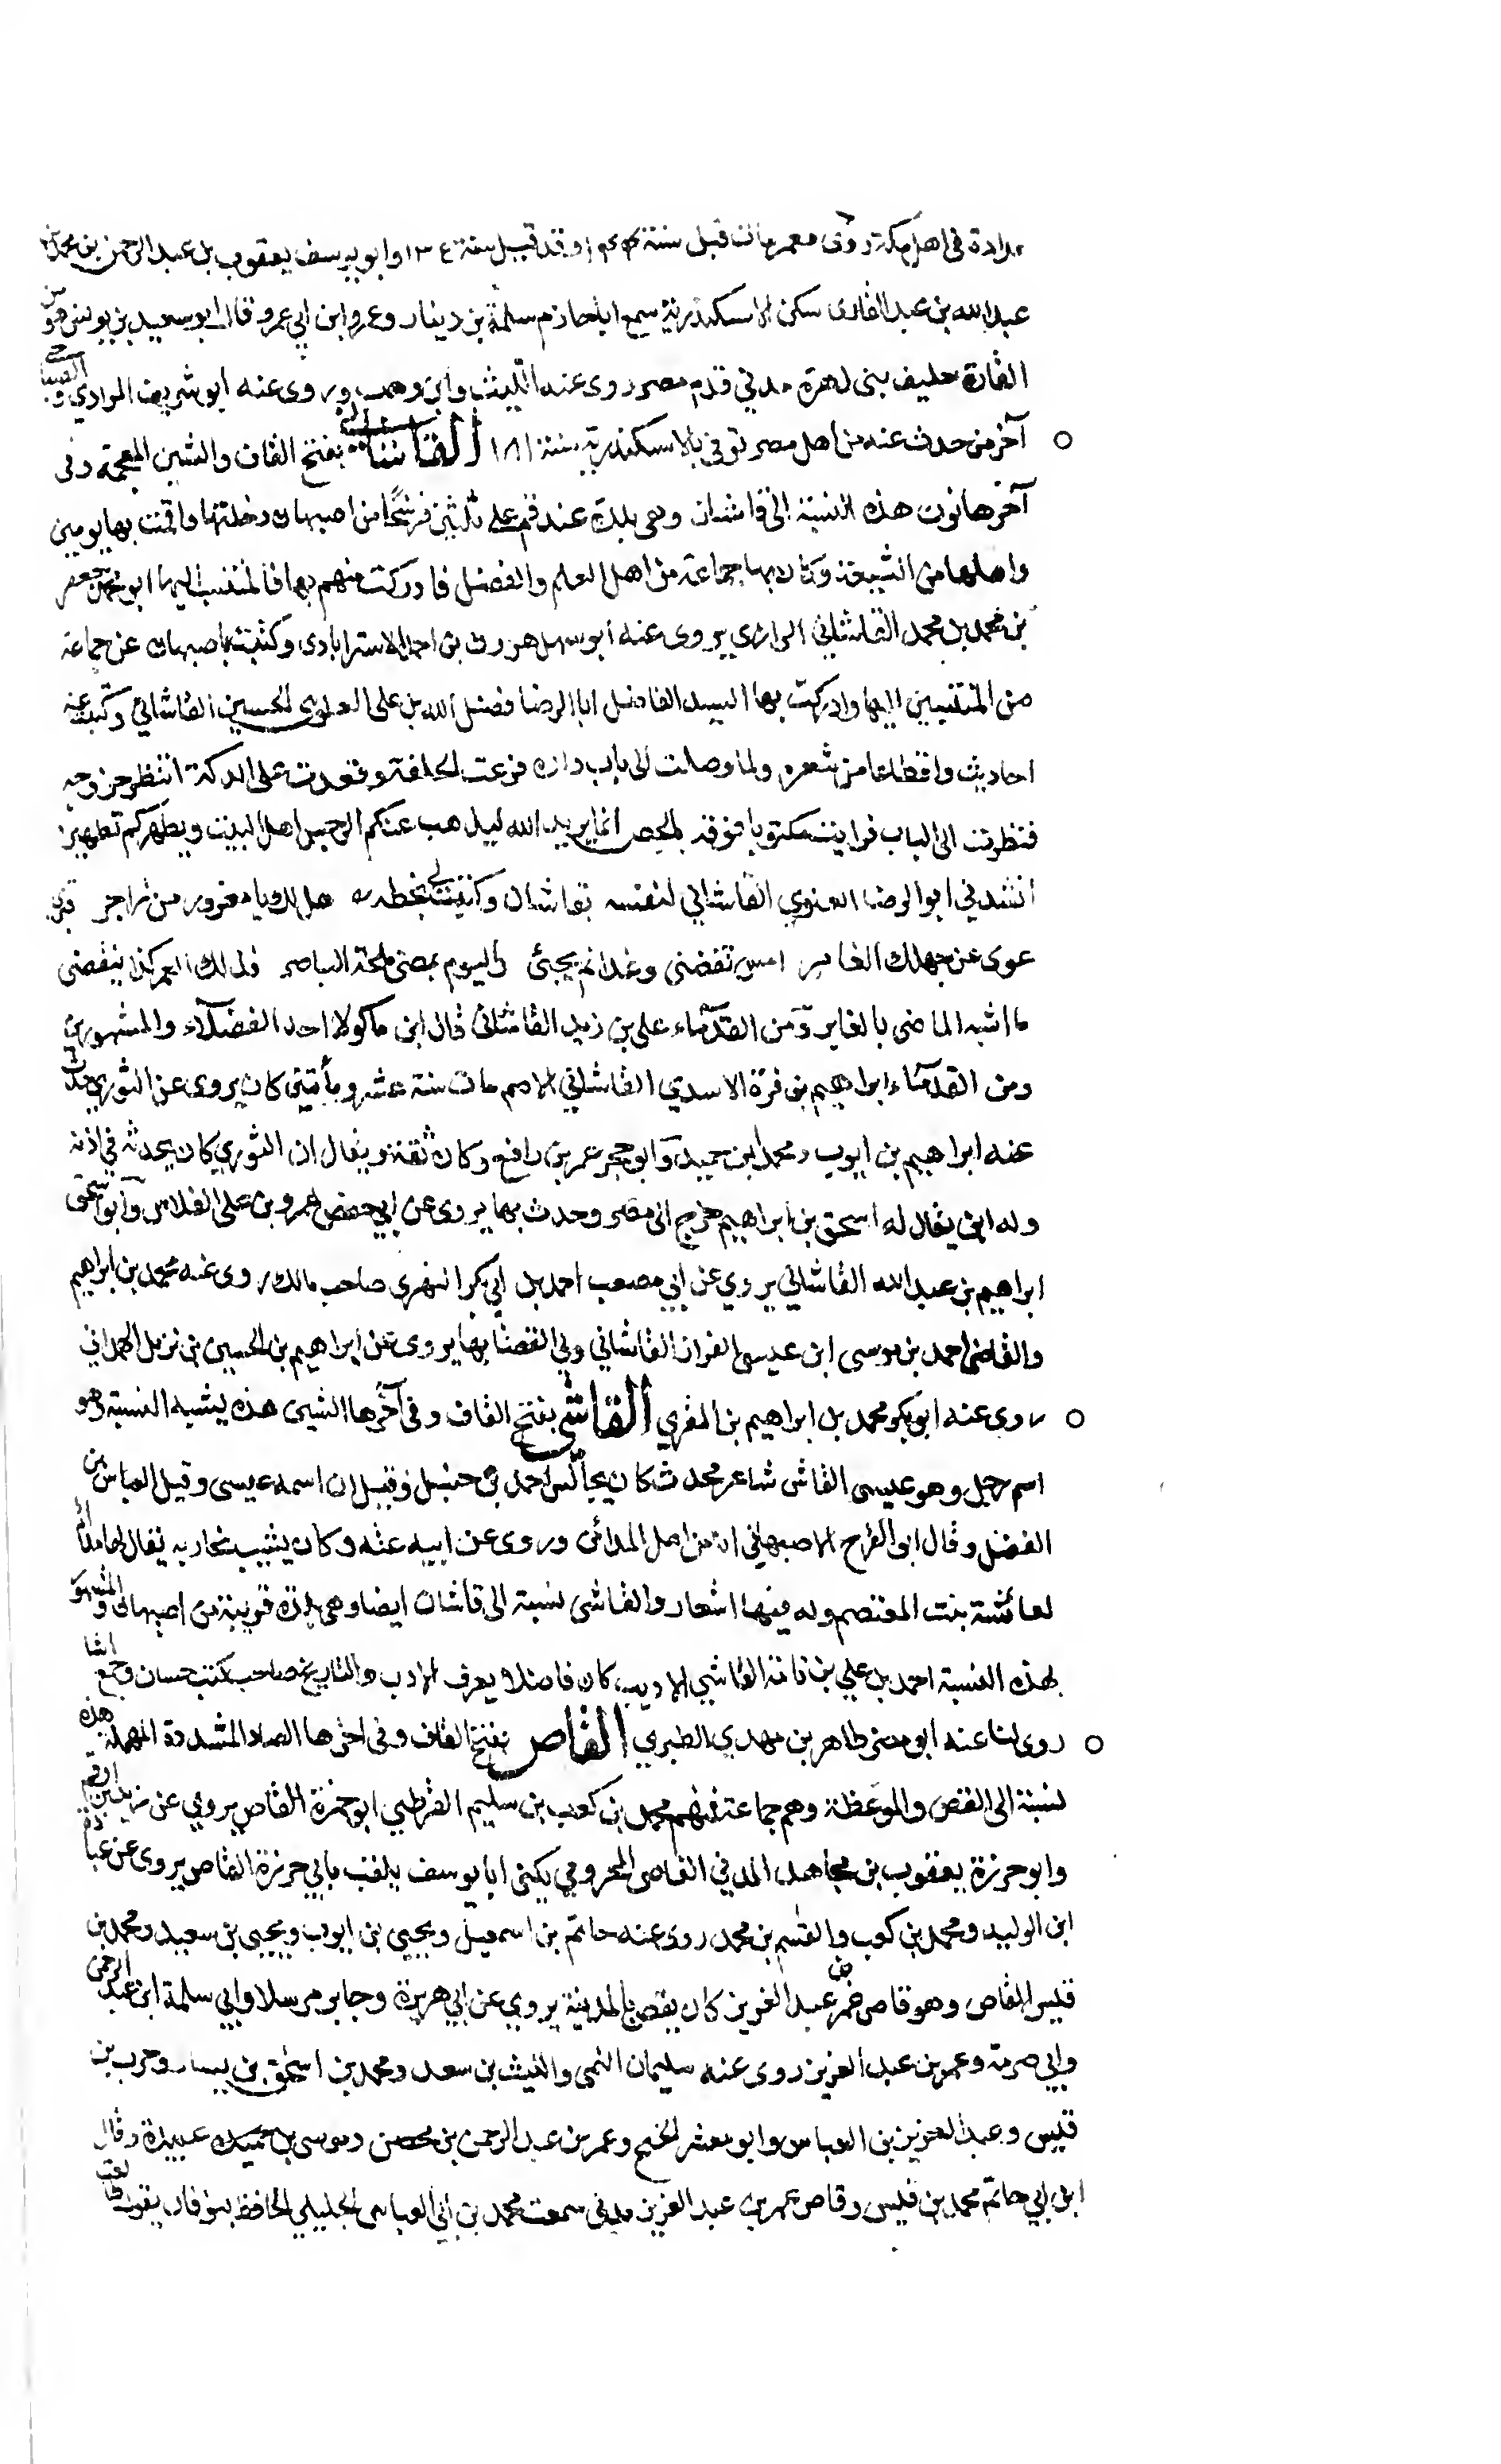 مرادة في اهل مكة روى معمر مات قبل سنة وقد قيل سنة ١٣٤ وابو يوسف يعقوب بن عبد الرحمن بن محمد بن
عبد الله بن عبد القارى سكن الاسكندرية سمع ابا حازم سلمة بن دينار وعمرو ابن ابي عمرو قال ابو سعيد بن يونس هو من
القارة حليف بنى زهرة مدني قدم مصر روى عنه الليث وابن وهب وروى عنه ابو شريف المرادي و
آخر من حدث عنه من اهل مصر توفي بالاسكندرية سنة ١٨١ القاشاني بفتح القاف والشين المعجمة وفى
آخرها نون هذه النسبة الى قاشان وهى بلدة عند قم على ثلثين فرسخا من اصبهان دخلتها واقمت بها يومين
واهلها من الشيعة وكان بها جماعة من اهل العلم والفضل فادركت منهم بها فالمنتسب اليها ابو محمد جعفر
بن محمد بن محمد القاشاني الرازي يروى عنه ابو سهل هرون بن احمد الاسترابادى وكتبت باصبهان عن جماعة
من المنتسبين اليها وادركت بها السيد الفاضل ابا الرضا فضل الله بن على العلوى الحسيني القاشاني وكتبت عنه
احاديث واقطاعا من شعره ولما وصلت الى باب داره قرعت الحلقة وقعدت على الدكة انتظر خروجه
فنظرت الى الباب فرايت مكتوبا فوقه بالجص انما يريد الله ليذهب عنكم الرجس اهل البيت ويطهركم تطهيرا
انشدني ابو الرضا العلوي القاشاني لنفسه بقاشان وكتبه لي بخطه هل لك يا مغرور من زاجر
عن جهلك الغامر امس تقضى وغدا لم يجئ واليوم يمضى لمحة الباصر فذلك العمر كذا ينقضى
ما اشبه الماضى بالغابر ومن القدماء على بن زيد القاشانى قال ابن ماكولا احد الفضلاء والمشهورين
ومن القدماء ابراهيم بن قرة الاسدي القاشاني الاصم مات سنة عشر ومأتين كان يروى عن الثوري حدث
عنه ابراهيم بن ايوب ومحمد ابن حميد وابو حجر عمر بن رافع وكان ثقة ويقال ان الثوري كان يحدثه في اذنه
وله ابن يقال له اسحق بن ابراهيم خرج الى مصر وحدث بها يروى عن ابي حفص عمرو بن على الفلاس وابو اسحق
ابراهيم بن عبد الله القاشاني يروي عن ابي مصعب احمد بن ابي بكر الزهرى صاحب مالك روى عنه محمد بن ابراهيم
والقاضى احمد بن موسى ابن عيسى القاشاني ولي القضا بها يروى عن ابراهيم بن الحسين بن نزيل الهمداني
روى عنه ابو بكر محمد بن ابراهيم بن المقري القاشى بفتح القاف وفى آخرها الشين هذه يشبه النسبة وهو
اسم رجل وهو عيسى القاشى شاعر محدث كان يجالس احمد بن حنبل وقيل ان اسمه عيسى وقيل العباس بن
الفضل وقال ابو الفرج الاصبهاني انه من اهل المدائن وروى عن ابيه عنه وكان يشبب بجاريه يقال لها
لعائشة بنت المعتصم وله فيها اشعار والقاشى نسبة الى قاشان ايضا وهى بلدة قريبة من اصبهان والمشهور
بهذه النسبة احمد بن علي بن القاشي الاديب كان فاضلا يعرف الادب والتاريخ صاحب كتب حسان وجمع
روى لنا عنه ابو مضر طاهر بن مهدي الطبري القاص بفتح القاف وفى اخرها الصاد المشددة المهملة هذه
لنسبة الى القص والموعظة وهم جماعة فمنهم محمد بن كعب بن سليم القرظي ابو حمزة القاص يروي عن زيد بن ارقم
وابو حرزة يعقوب بن مجاهد المدني القاص المخزومي يكنى ابا يوسف يلقب بابي حرزة القاص يروى عن عبادة
ابن الوليد ومحمد بن كعب والقسم بن محمد روى عنه حاتم بن اسمعيل ويحيى بن ايوب ويحيى بن سعيد ومحمد بن
قيس القاص وهو قاص عمر بن عبد العزيز كان يقص بالمدينة يروي عن ابي هريرة وجابر مرسلا وابي سلمة ابن عبد الرحمن
وابي صرمة وعمر بن عبد العزيز روى عنه سليمان التيمى والليث بن سعد ومحمد بن اسحق بن يسار وحرب بن
قيس وعبد العزيز بن العباس وابو معشر نجيح وعمر بن عبد الرحمن بن محصن وموسى بن عبيدة وقال
ابن ابي حاتم محمد بن قيس وقاص عمر بن عبد العزيز مدنى سمعت محمد بن ابي العباس الجليلي الحافظ بنوقان يقول